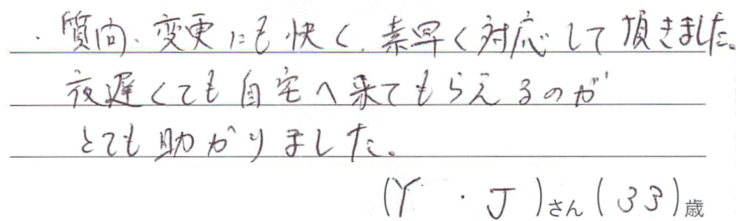 ・質問、変更にも快く、素早く対応して頂きました。
夜遅くても自宅へ来てもらえるのが
とても助かりました。
(Y・J)さん(33)歳